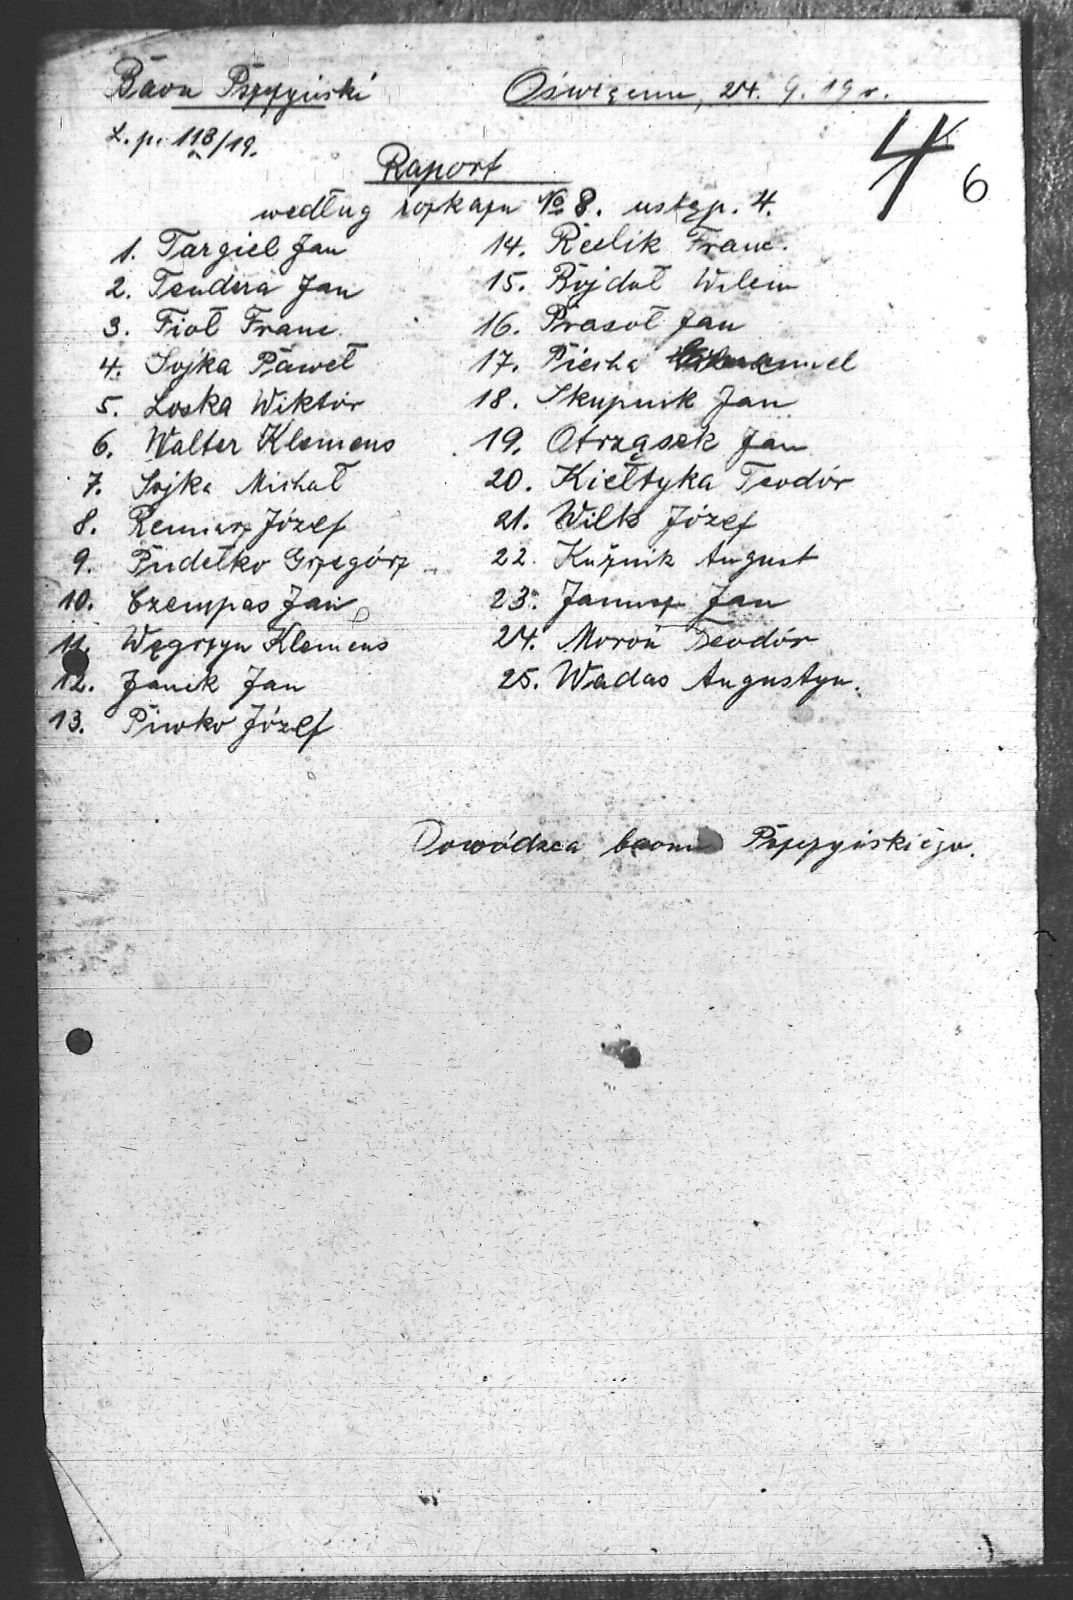 Baon Pszczyński
Oświęcim, 24. 9. 19 r.
L. p. 118/19.
4
6
Raport
według rozkazu № 8. ustęp. 4.
1. Targiel Jan
2. Tendera Jan
3. Fioł Franc.
4. Sojka Paweł
5. Loska Wiktór
6. Walter Klemens
7. Sojka Michał
8. Józef
9. Pudełko Grzegórz
10. Czempas Jan
11. Węgrzyn Klemens
12. Janik Jan
13. Piwko Józef
14. Franc.
15. Bojdoł Wilem
16. Prasoł Jan
17. Piecha
18. Skupnik Jan
19. Otrząsek Jan
20. Kiełtyka Teodór
21. Wilk Józef
22. Kuźnik August
23. Janusz Jan
24. Moroń Teodór
25. Wadas Augustyn.
Dowódzca baonu Pszczyńskiego.